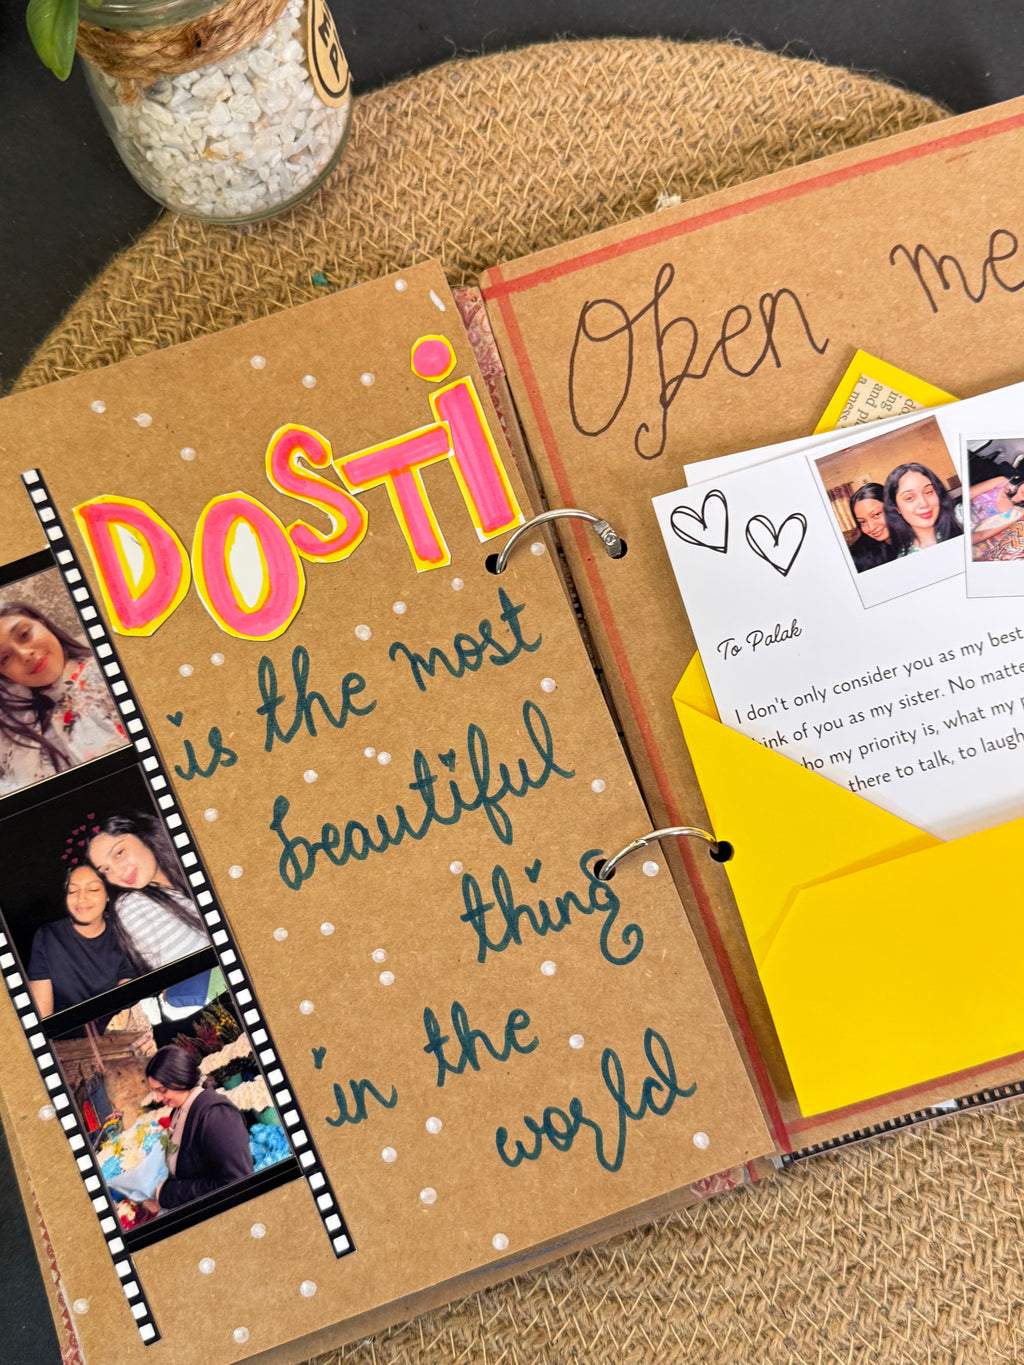 DOSTi
is the most
beautiful
thing
in the
world
Open me
To Palak
I don't only consider you as my best
think of you as my sister. No matte
ho my priority is, what my p
there to talk, to laugh
do
ing
and
a mess